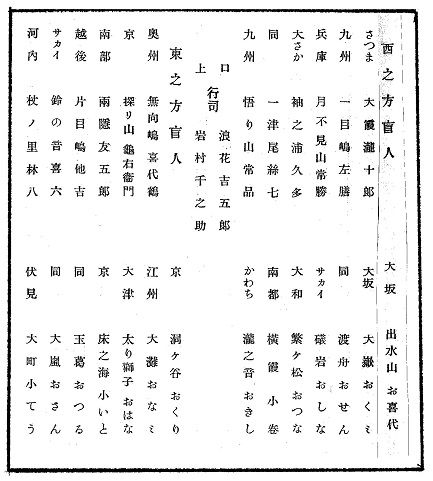 西之方盲人
大坂 出水山 お喜代
さつま 大霞瀧十郎
大坂 大嶽おくミ
九州 一目嶋左膳
同 渡舟おせん
兵庫 月不見山常勝
サカイ 礒岩おしな
大さか 袖之浦久多
大和 繁ケ松おつな
同 一津尾絲七
南都 横霞小巻
九州 悟り山常品
かわち 瀧之音おきし
口 浪花吉五郎
行司
上 岩村千之助
東之方盲人
京 洞ケ谷おくり
奥州 無向嶋喜代鶴
江州 大灘おなミ
京 探リ山龜右衞門
大津 太り獅子おはな
南部 雨隠友五郎
京 床之海小いと
越後 片目嶋他吉
同 玉葛おつる
サカイ 鈴の音喜六
同 大嵐おさん
河内 杖ノ里林八
伏見 大町小てう